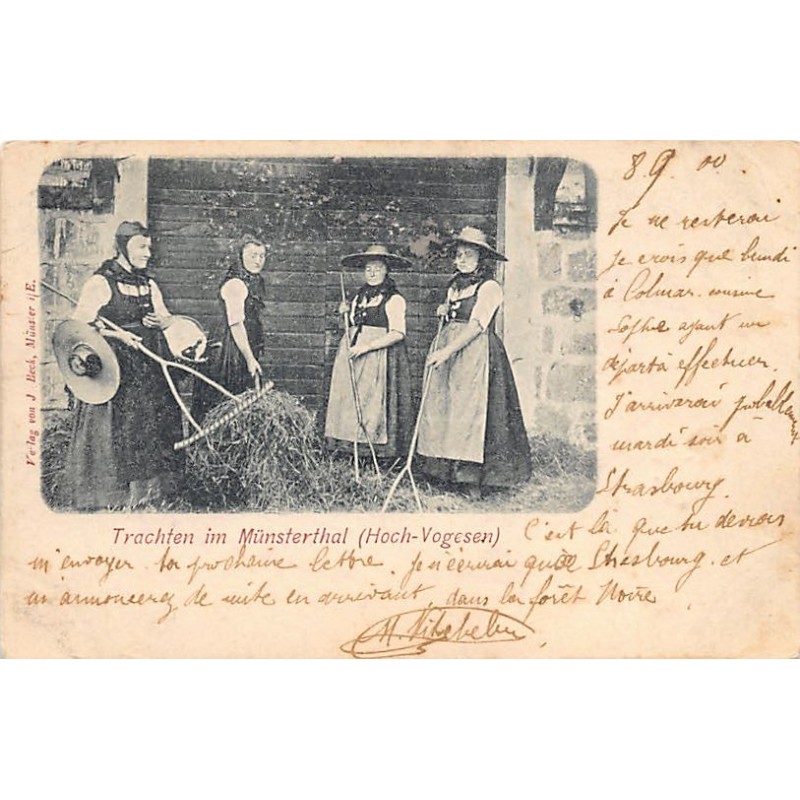 8 9. 00.
Je ne resterai
je crois que lundi
à Colmar. cousine
Sophie ayant un
départ à effectuer.
J'arriverai
mardi soir à
Strasbourg.
C'est là que tu devrais
m'envoyer ta prochaine lettre. Je n'écrirai que Strasbourg. et
en arrivant dans la forêt Noire
Trachten im Münsterthal (Hoch-Vogesen)
Verlag von J. Beck, Münster i/E.